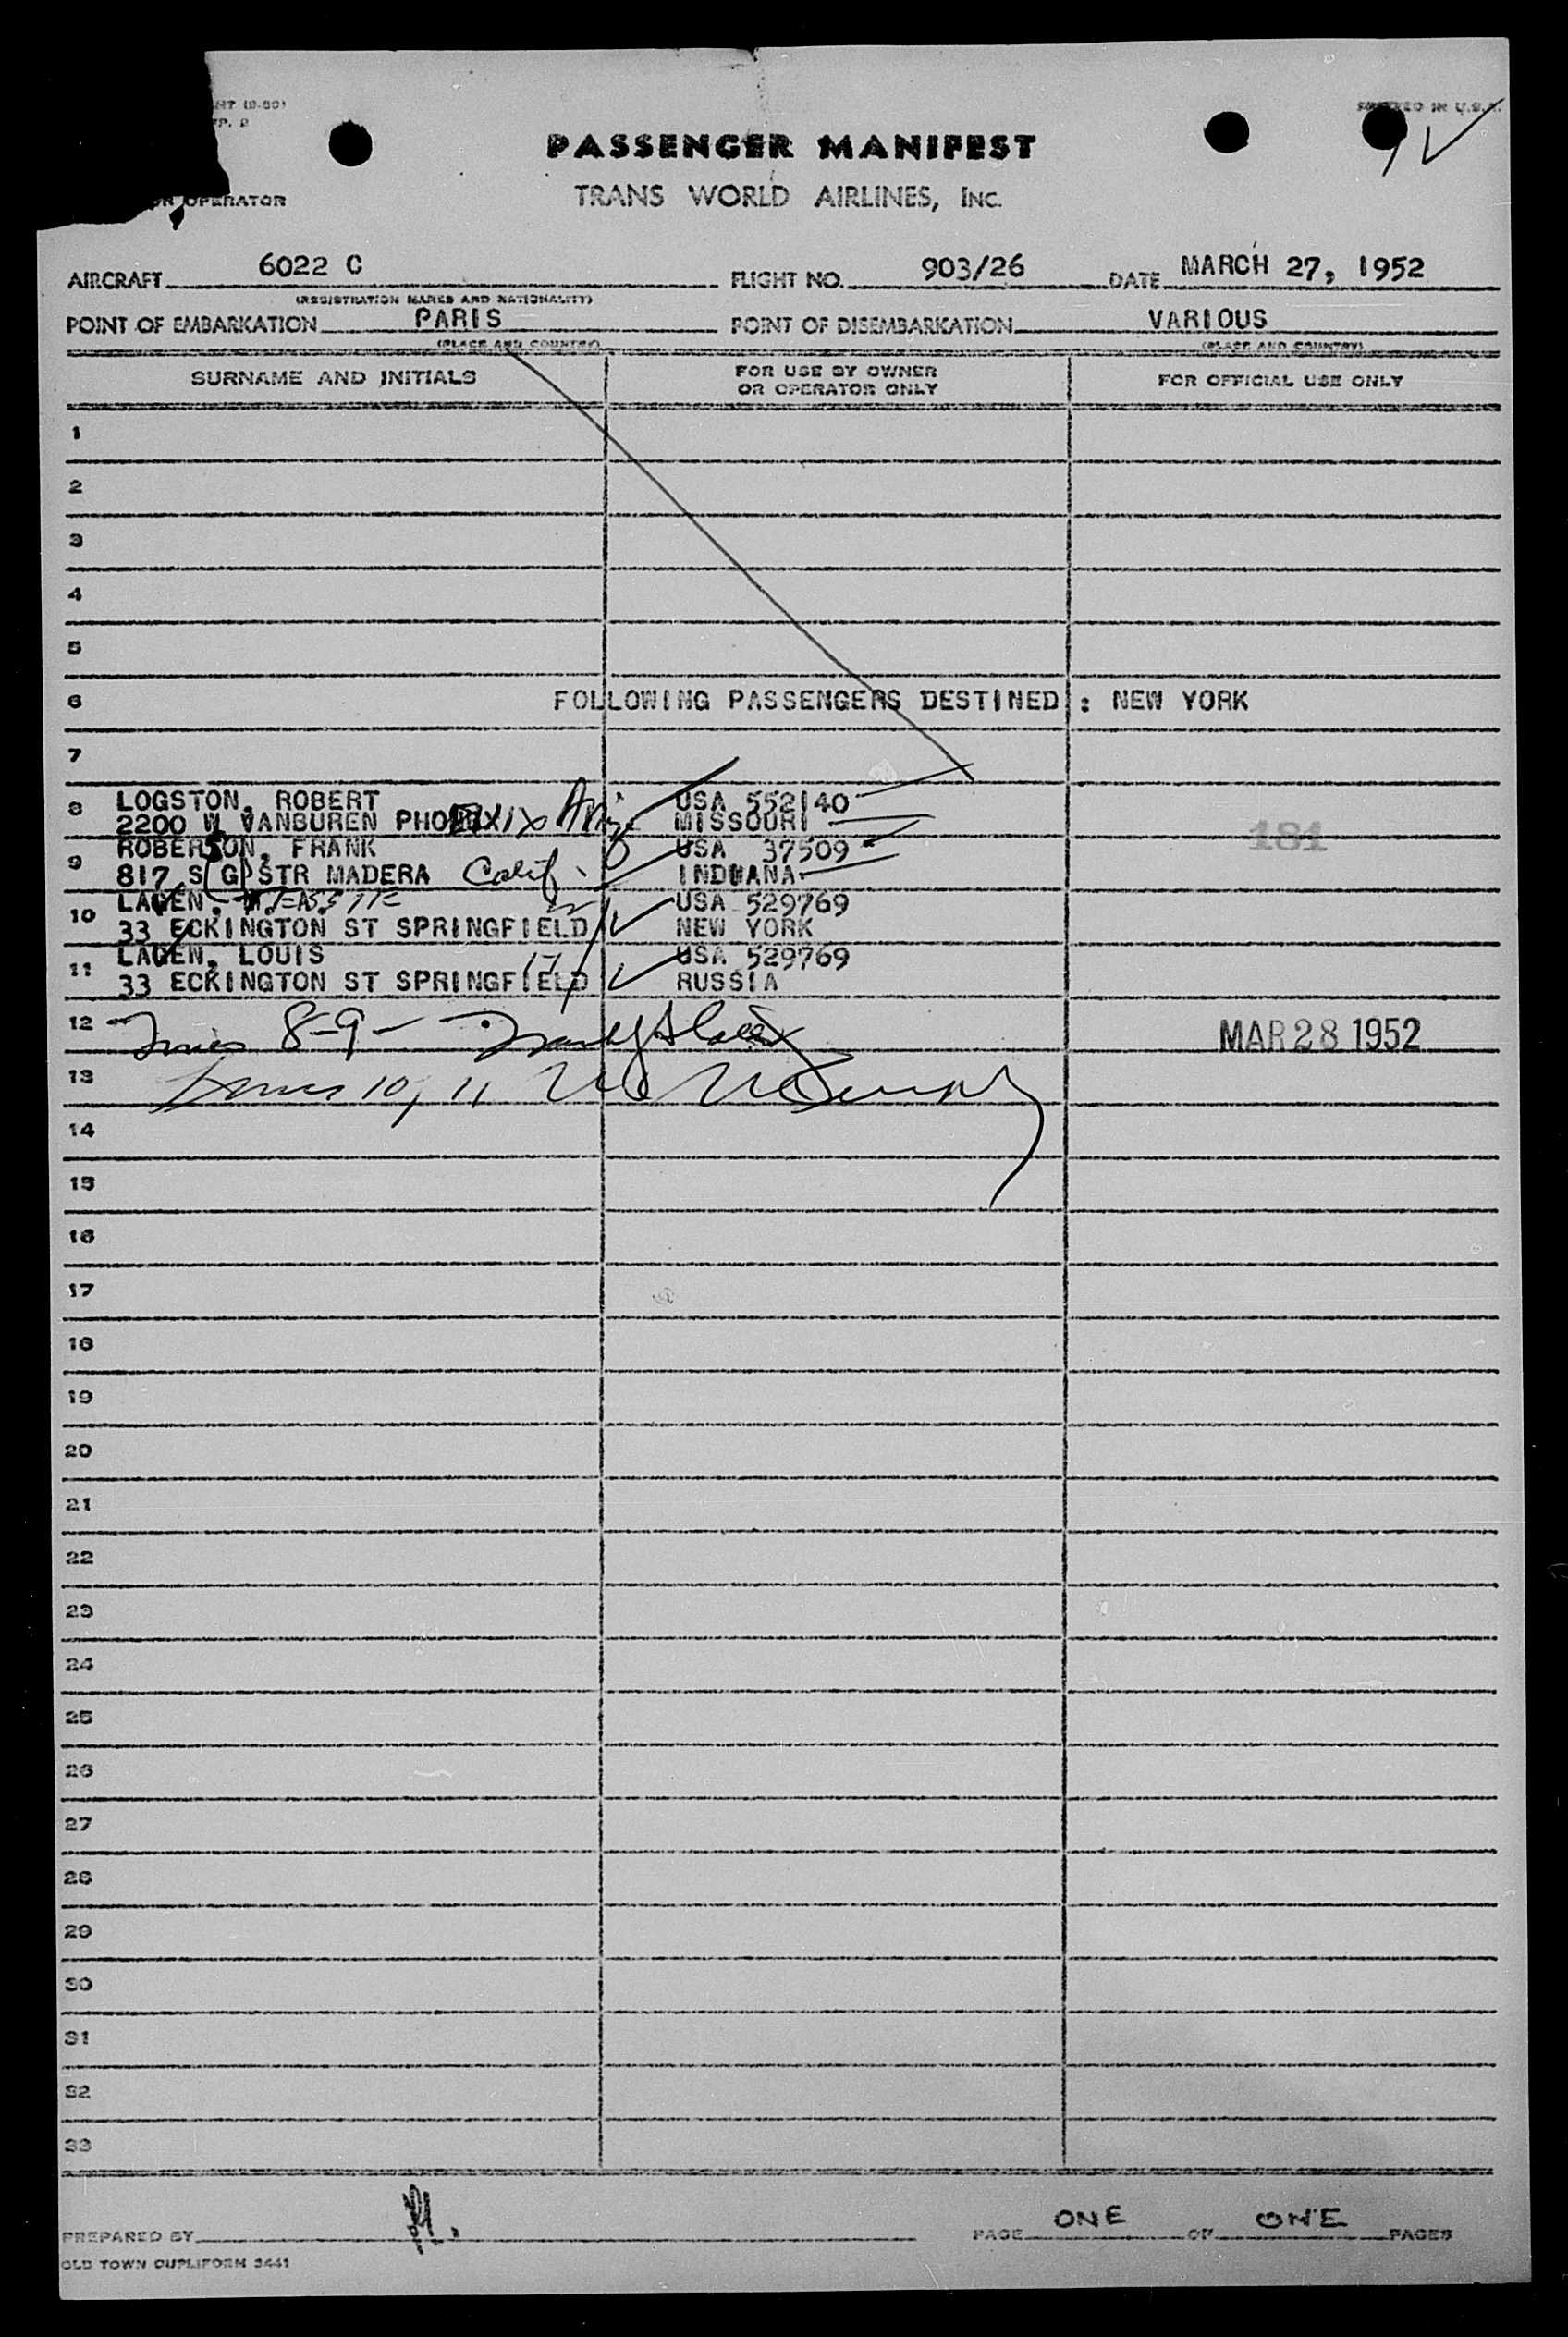 PRINTED IN U.S.A.
PASSENGER MANIFEST
TRANS WORLD AIRLINES, INC.
OR OPERATOR
AIRCRAFT 6022 C FLIGHT NO. 903/26 DATE MARCH 27, 1952
(REGISTRATION MARKS AND NATIONALITY)
POINT OF EMBARKATION PARIS POINT OF DISEMBARKATION VARIOUS
(PLACE AND COUNTRY) (PLACE AND COUNTRY)
SURNAME AND INITIALS FOR USE BY OWNER OR OPERATOR ONLY FOR OFFICIAL USE ONLY
1
2
3
4
5
6 FOLLOWING PASSENGERS DESTINED : NEW YORK
7
8 LOGSTON, ROBERT USA 552140
2200 W VANBUREN Ariz MISSOURI
181
9 ROBERSON, FRANK USA 37509
817 S G STR MADERA Calif. INDIANA
10 USA 529769
33 ECKINGTON ST SPRINGFIELD NEW YORK
11 LOUIS USA 529769
33 ECKINGTON ST SPRINGFIELD RUSSIA
12 8-9- MAR 28 1952
13 10, 11
14
15
16
17
18
19
20
21
22
23
24
25
26
27
28
29
30
31
32
33
PREPARED BY PAGE ONE OF ONE PAGES
OLD TOWN DUPLIFORM 3441